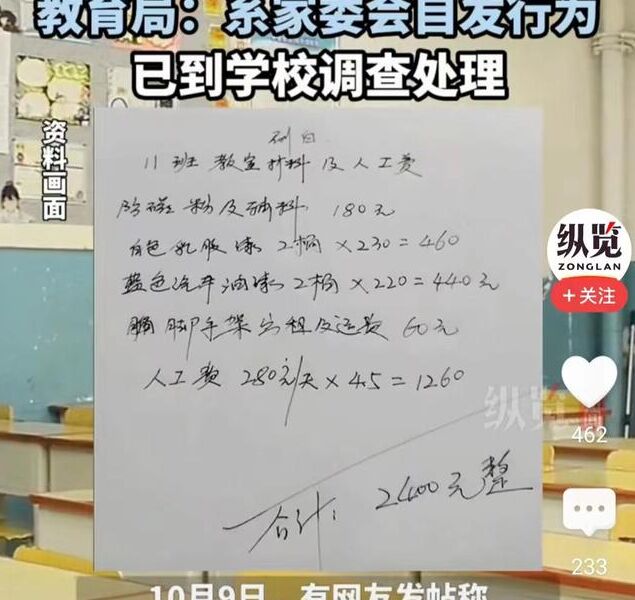 教育局：系家委会自发行为
已到学校调查处理
资料画面
11班 教室材料及人工费
防磁粉及辅料 180元
白色乳胶漆 2桶 ×230=460
蓝色汽车油漆 2桶 ×220=440元
脚手架出租及运费 60元
人工费 280元/天 ×4.5=1260
合计: 2400元整
纵览
ZONGLAN
+关注
纵览
462
233
10月9日，有网友发帖称